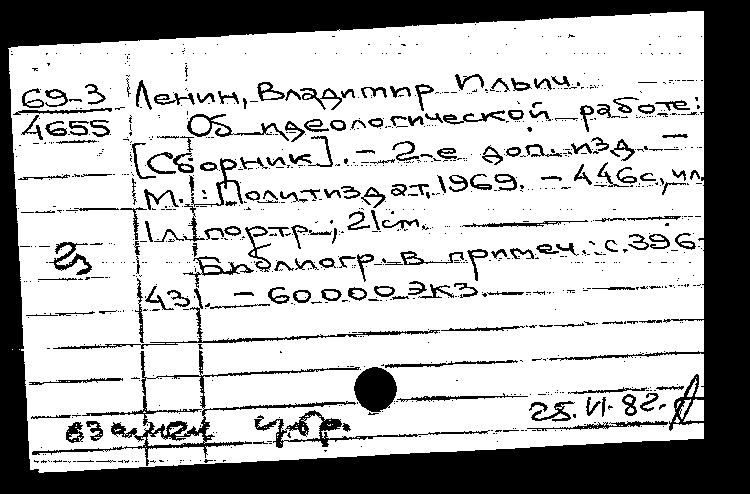 69-3 Ленин, Владимир Ильич.
4655 Об идеологической работе:
[Сборник]. - 2-е доп. изд. -
М.: Политиздат, 1969. - 446с., ил.
1л. портр.; 21см.
Библиогр. в примеч.: с.396-
431. - 60000экз.
взамен
25.VI.82.